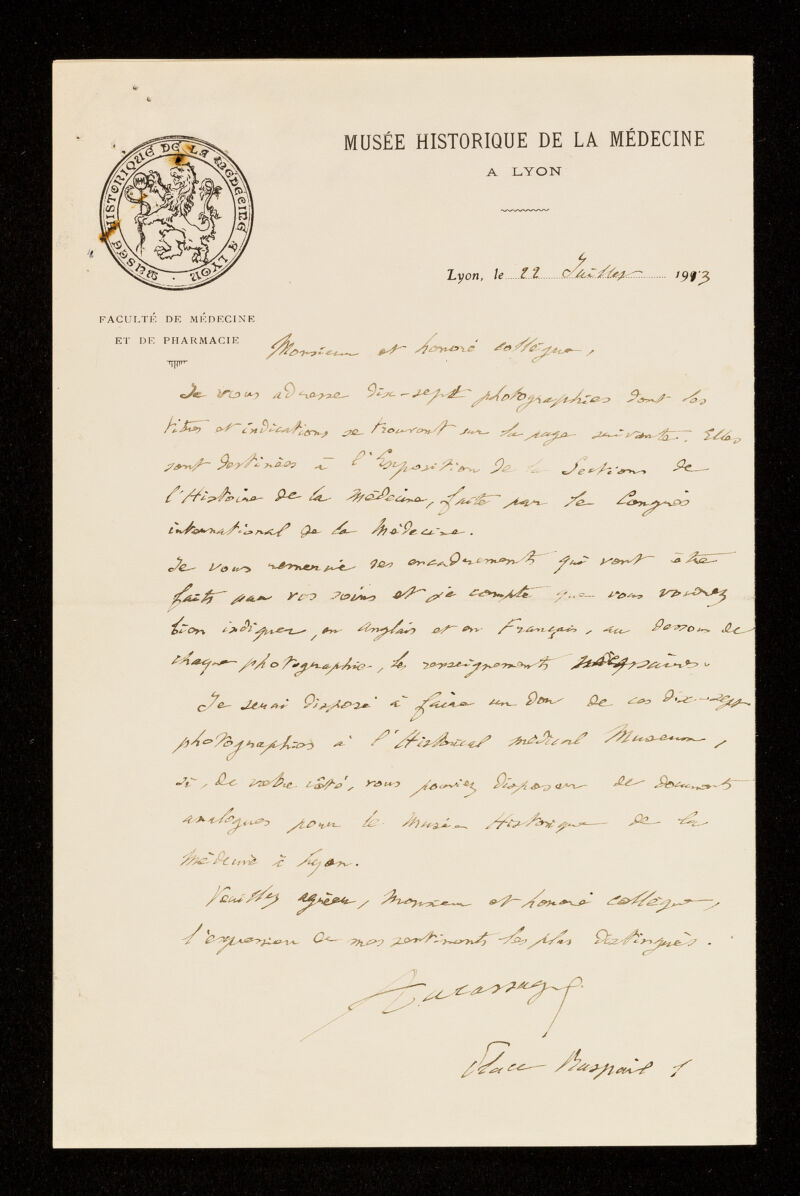 MUSÉE HISTORIQUE DE LA MÉDECINE
A LYON
MUSÉE HISTORIQUE DE LA MÉDECINE A LYON
Lyon, le 22 Juillet 1913
FACULTÉ DE MÉDECINE
ET DE PHARMACIE
Monsieur et honoré collègue,
Je vous adresse dix-sept photographies dont les
titres et indications se trouvent sur la page suivante. Elles
sont destinées à l'Exposition de la Section de
l'Histoire de la Médecine, faite par le Congrès
international de la Médecine.
Je vous remercie des encadrements qui vont être
faits par vos soins et je compte que vous voudrez
bien indiquer, en Anglais et en Français, au dessous de
chaque photographie, les renseignements nécessaires.
Je serai disposé à faire un don de ces dix-sept
photographies à l'Historical medical Museum,
si, de votre côté, vous pouviez disposer de documents
analogues pour le Musée Historique de la
Médecine à Lyon.
Veuillez agréer, Monsieur et honoré collègue,
l'expression de mes sentiments les plus distingués.
A Lacassagne
Place Raspail 1